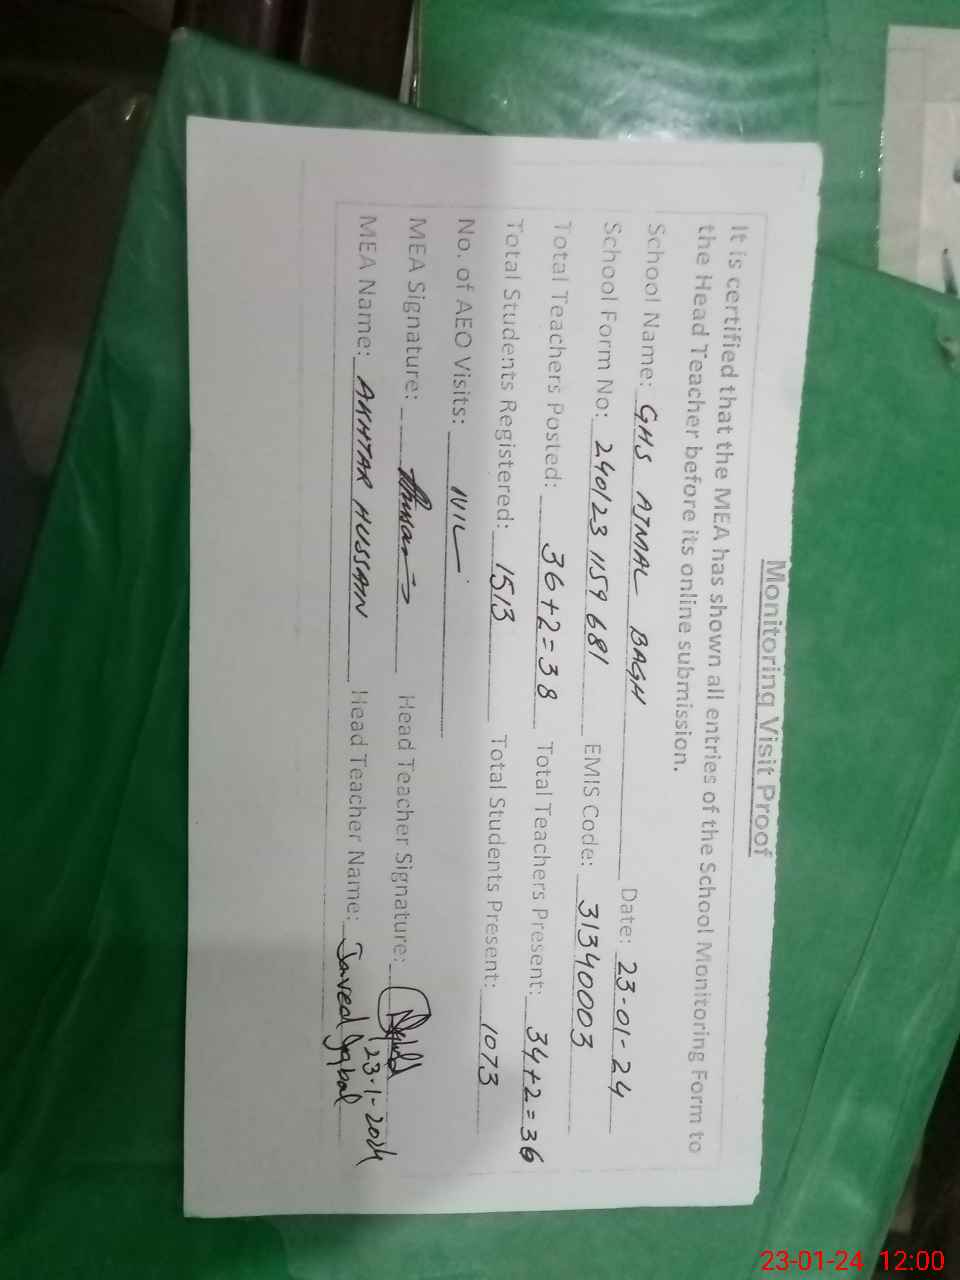 Monitoring Visit Proof
It is certified that the MEA has shown all entries of the School Monitoring Form to
the Head Teacher before its online submission.
School Name: GHS AJMAL BAGH Date: 23-01-24
School Form No: 240123 1159 681 EMIS Code: 31340003
Total Teachers Posted: 36+2=38 Total Teachers Present: 34+2=36
Total Students Registered: 1513 Total Students Present: 1073
No. of AEO Visits: NIL
MEA Signature: Head Teacher Signature:
23-1-2024
MEA Name: AKHTAR HUSSAIN Head Teacher Name: Javed Iqbal
23-01-24 12:00